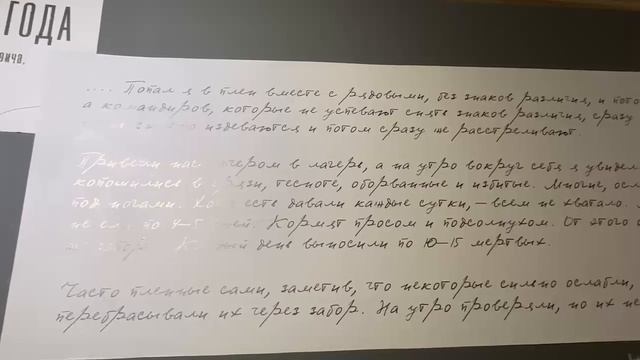 ГОДА
.... Попал я в плен вместе с рядовыми, без знаков различия, и пото
а командиров, которые не успевают снять знаков различия, сразу
издеваются и потом сразу же расстреливают.
Привели нас вечером в лагерь, а на утро вокруг себя я увидел
копошились в грязи, тесноте, оборванные и избитые. Многие, осл
под ногами. есть давали каждые сутки, – всем не хватало.
не ел по 4–5 дней. Кормят просом и подсолнухом. От этого
Каждый день выносили по 10–15 мертвых.
Часто пленные сами, заметив, что некоторые сильно ослабли,
перебрасывали их через забор. На утро проверяли, но их не